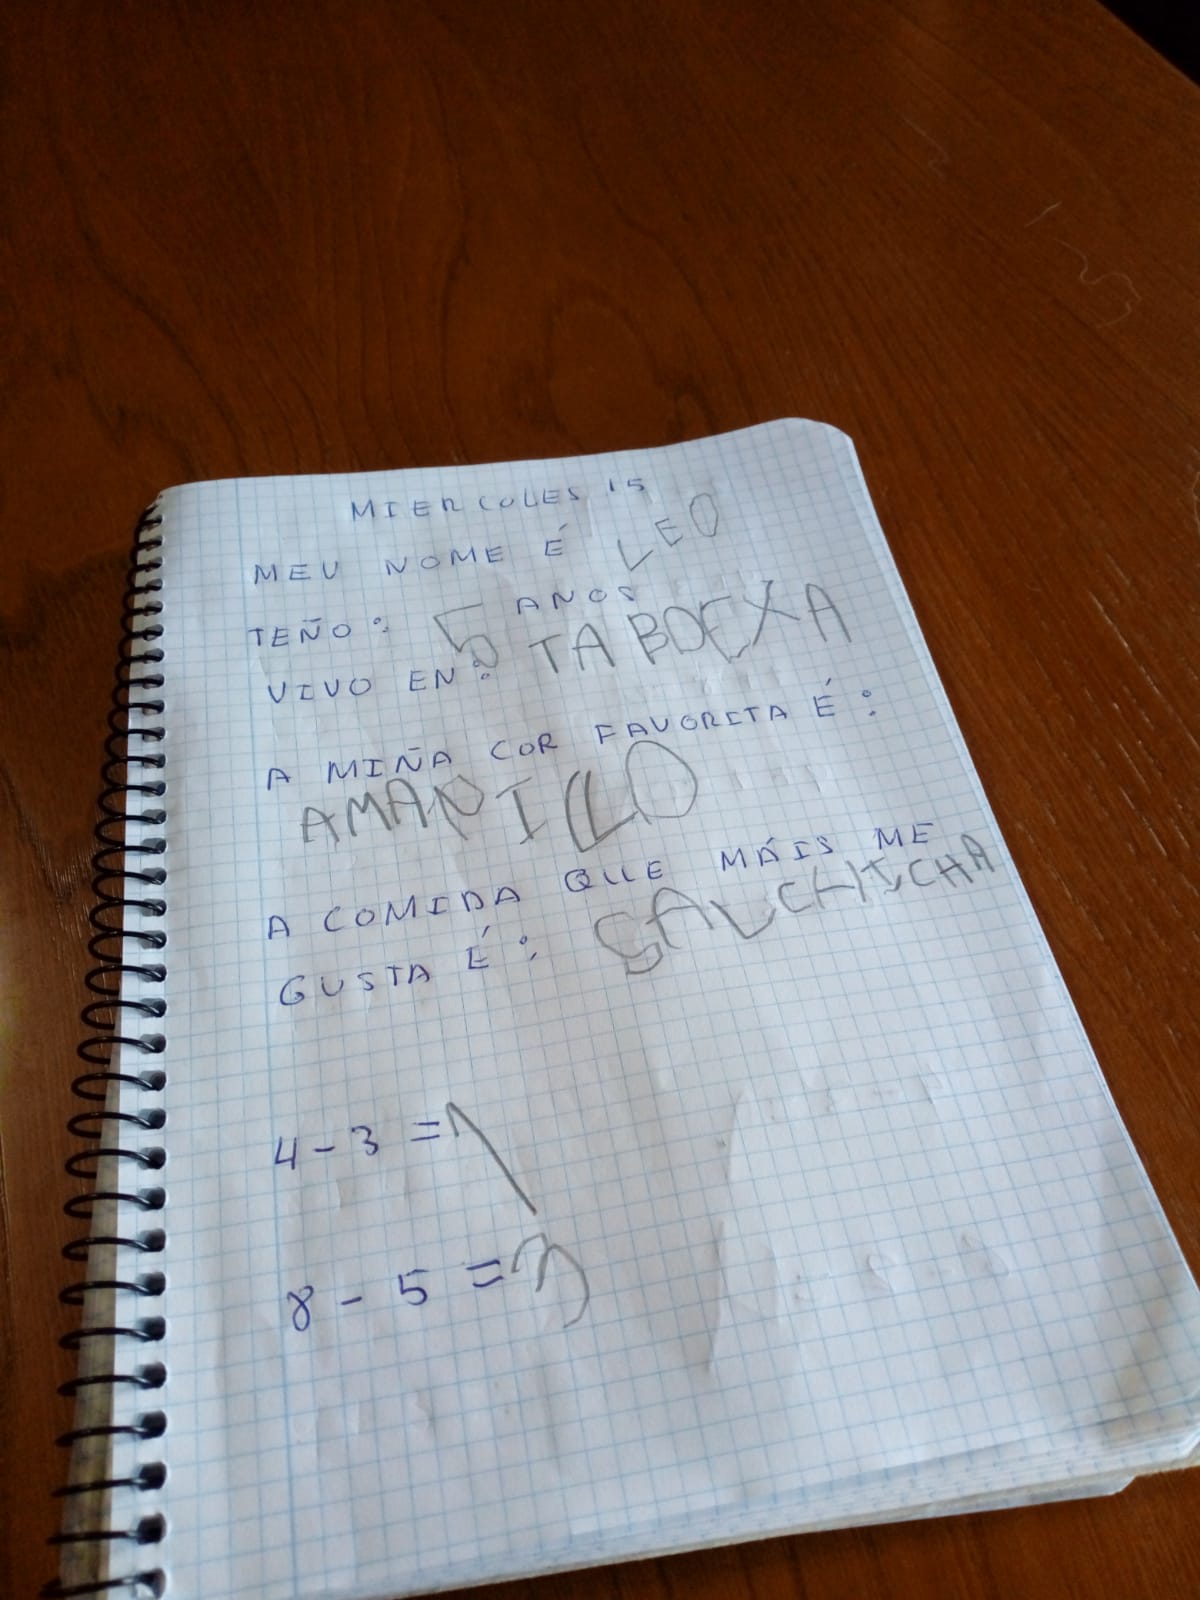 MIERCOLES 15
MEU NOME É LEO
TEÑO: 5 ANOS
VIVO EN: TABOEXA
A MIÑA COR FAVORITA É:
AMARILLO
A COMIDA QUE MÁIS ME
GUSTA É: SALCHICHA
4-3 = 1
8-5 = 3